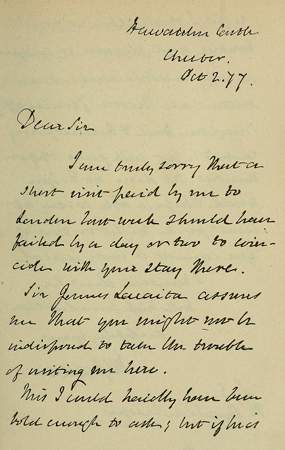 Hawarden Castle
Chester.
Oct 2. 77.
Dear Sir
I am truly sorry that a
short visit paid by me to
London last week should have
failed by a day or two to coin-
cide with your stay there.
Sir James Lacaita assures
me that you might not be
indisposed to take the trouble
of visiting me here.
This I could hardly have been
bold enough to ask; but if his